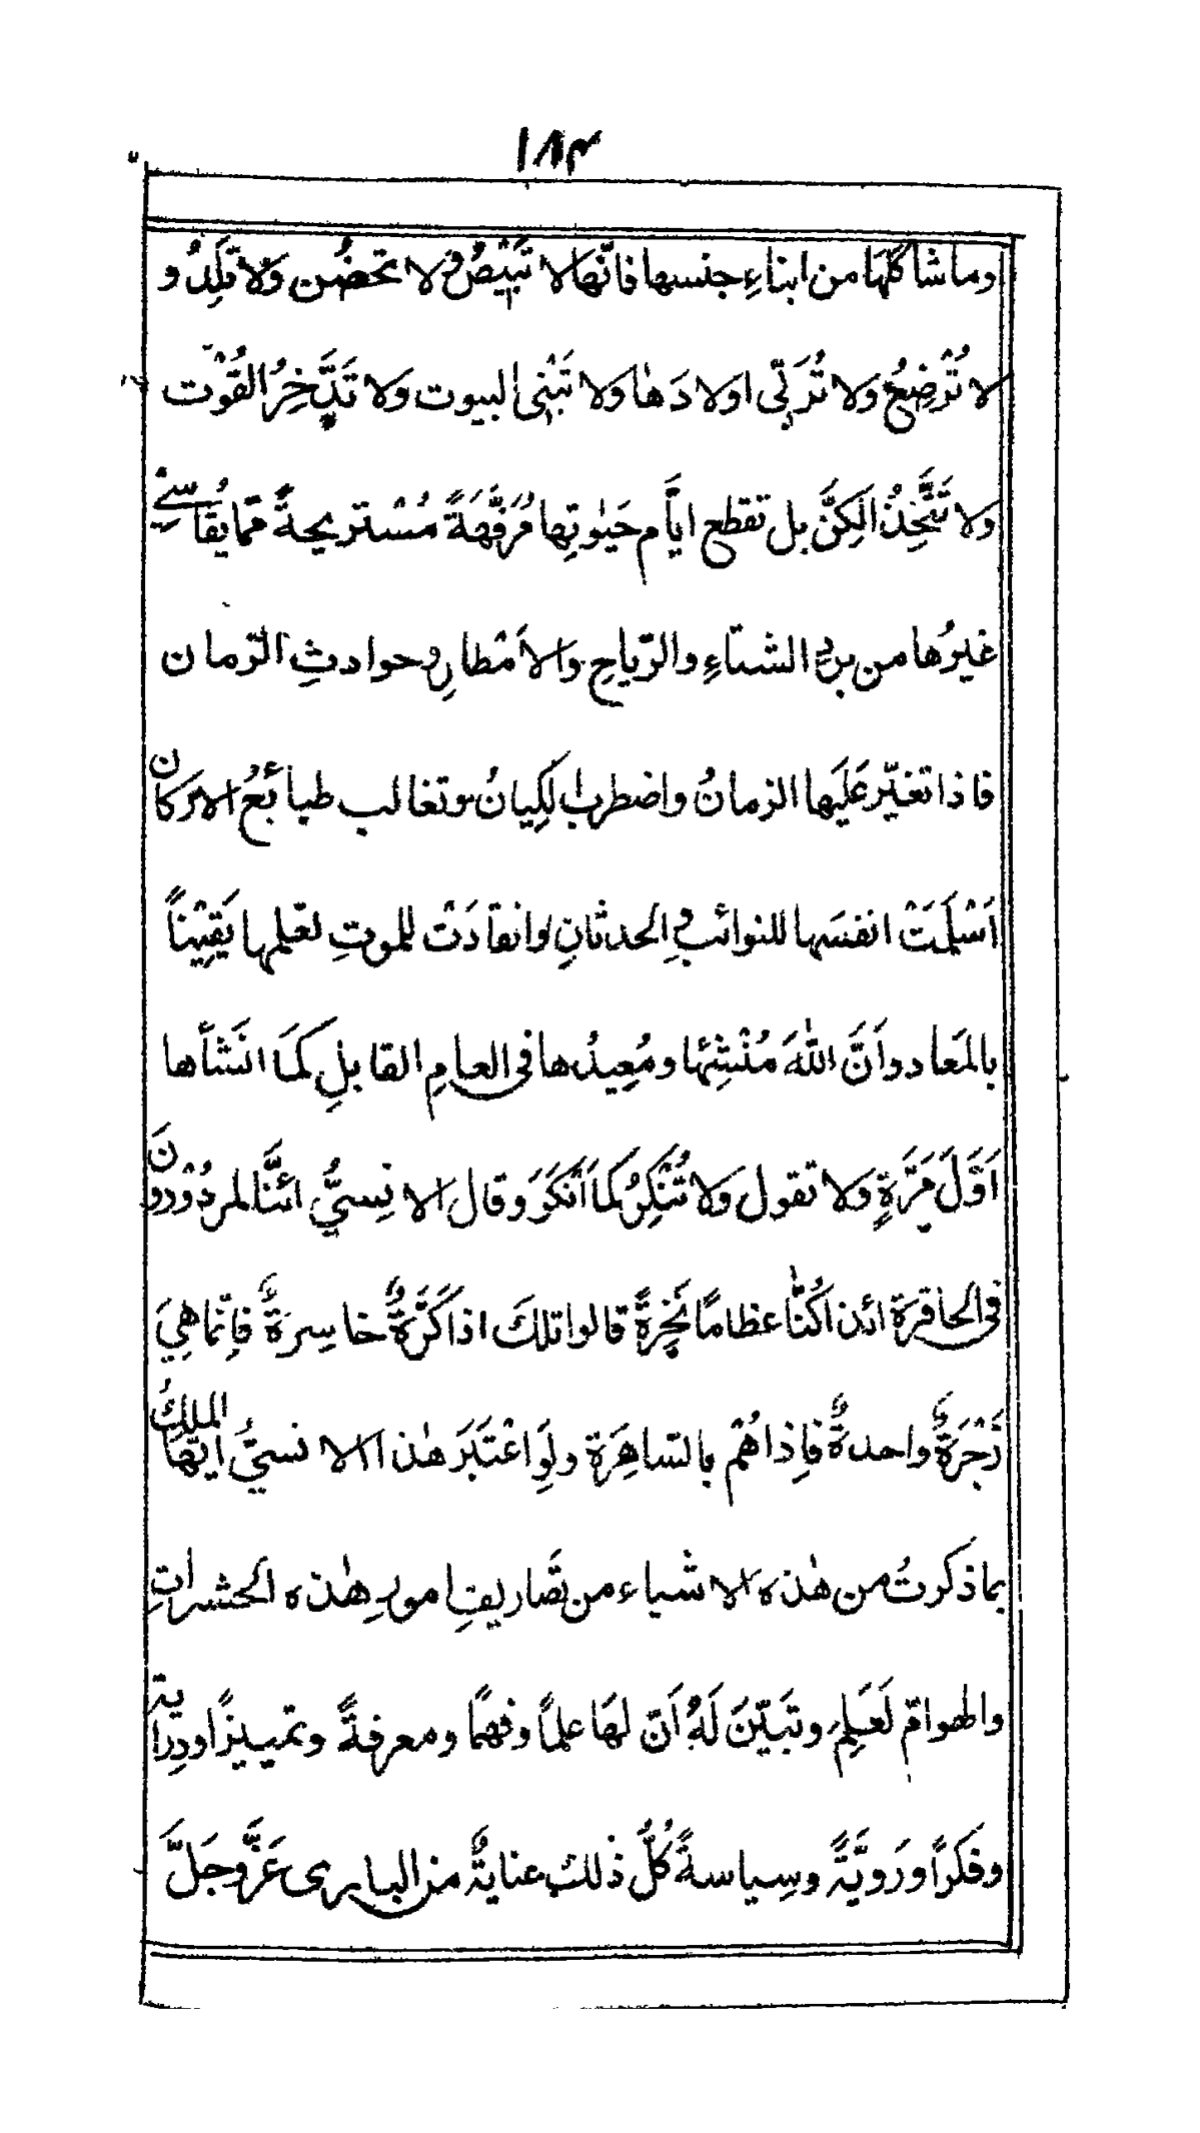 ١٨٣
وما شاكلَهَا من ابناءِ جنسها فانّها لا تَبِيْضُ وَ لا تحضُن وَلَا تَلِدُ و
لا تُرْضِعُ وَلا تُرَبّى اولادَهٰا ولا تَبْنِى البيوت وَلا تَدَّخِرُ القُوْت
ولا تَتَّخِذُ الَكِنَّ بل تقطع ايَّام حَيٰوتِها مُرَفَّهَةً مُسْتريحةً ممّا يُقَاسے
غيرُها من بردِ الشتاءِ والرّياحِ والاَمْطارِ وحوادثِ الزّمان
فاذا تغيّر عَلَيها الزمانُ واضطربَ الكِيانُ وتغالب طبائعُ الاركان
اَسْلَمَتْ انفسَها للنوائب وَالحدثانِ وانقادَتْ للموتِ لعّلمها يَقِيْناً
بالمَعاد واَنَّ اللّٰهَ مُنْشِئها ومُعِيدُها فى العامِ القابلِ كَمَا انَشأها
اَوَّلَ مَرَّةٍ ولا تقول ولا تُنْكِرُ كمَا اَنْكَرَ وقال الانِسىُّ ائنَّا لمردُوْدُونَ
فى الحافرة ائذا كُنَّا عظامًا نَخِرةً قالوا تلكَ اذا كَرَّةٌ خاسِرةٌ فاِنّما هِيَ
زَجْرَةٌ واحدةٌ فاِذا هُمْ بالسّاهِرَة ولَوِ اعْتَبَرَ هٰذا الانسىُّ ايّهَا الملكُ
بما ذكرتُ من هٰذه الاشياء من تصَاريفِ امورِ هٰذه الحشراتِ
والهوامّ لَعَلِمَ وتَبَيّنَ لَهُ اَنّ لهَا علماً وفهمًا ومعرفةً وتمييزًا ودِراية
وفكراً ورَوِيَّةً وسِياسةً كُلُّ ذلك عنايةٌ من البارى عَزَّ وجَلَّ